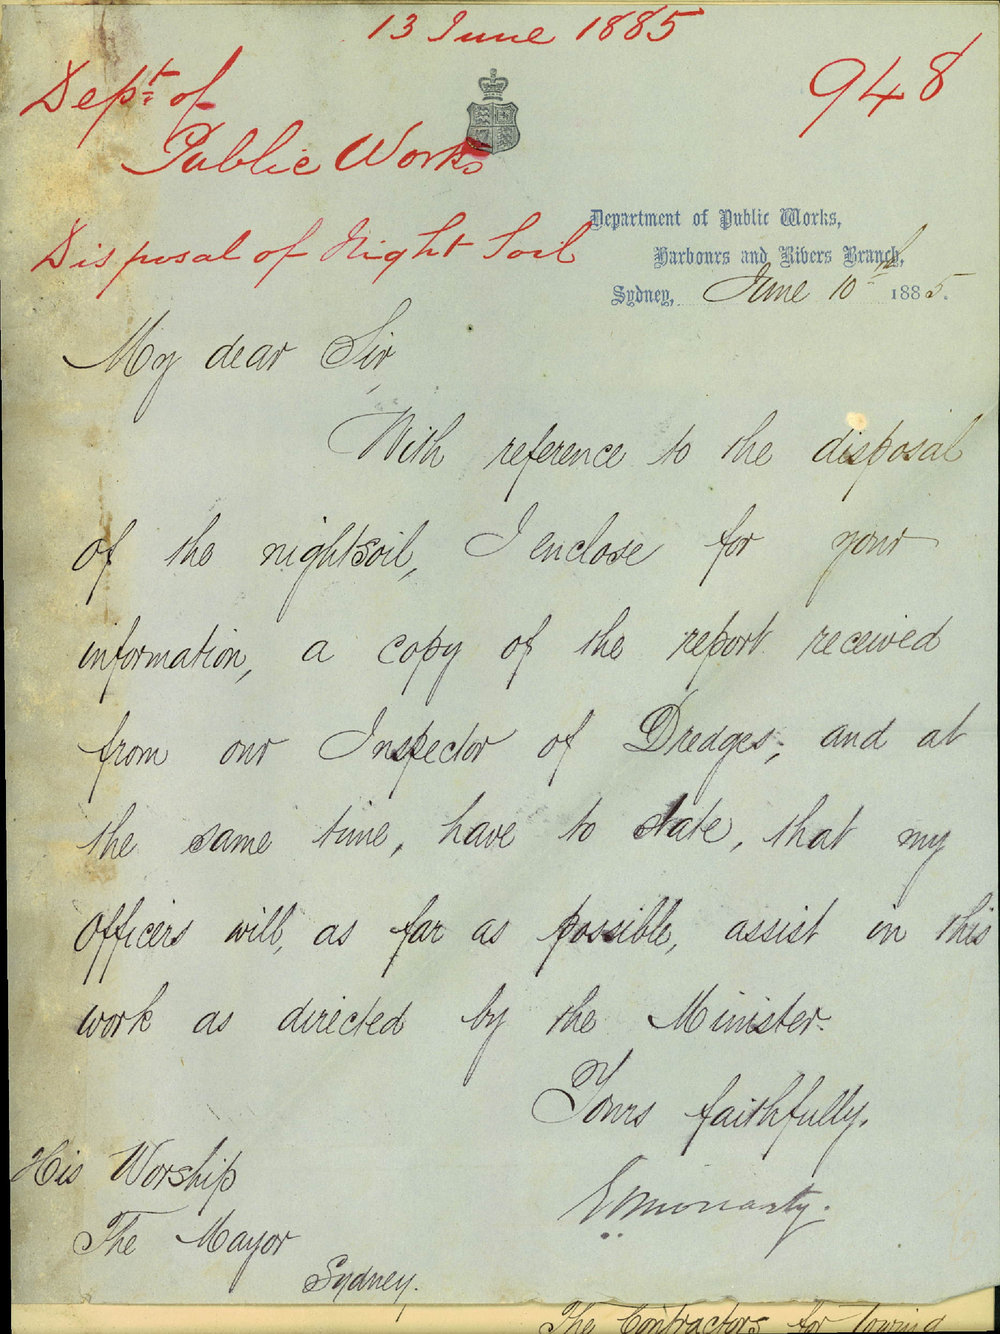 13 June 1885
948
Dept. of
Public Works
Disposal of Night Soil
Department of Public Works,
Harbours and Rivers Branch,
Sydney, June 10th 1885.
My dear Sir,
With reference to the disposal
of the nightsoil, I enclose for your
information, a copy of the report received
from our Inspector of Dredges; and at
the same time, have to state, that my
Officers will, as far as possible, assist in this
work as directed by the Minister.
Yours faithfully,
EOMoriarty.
His Worship
The Mayor
Sydney.
The Contractors for towing